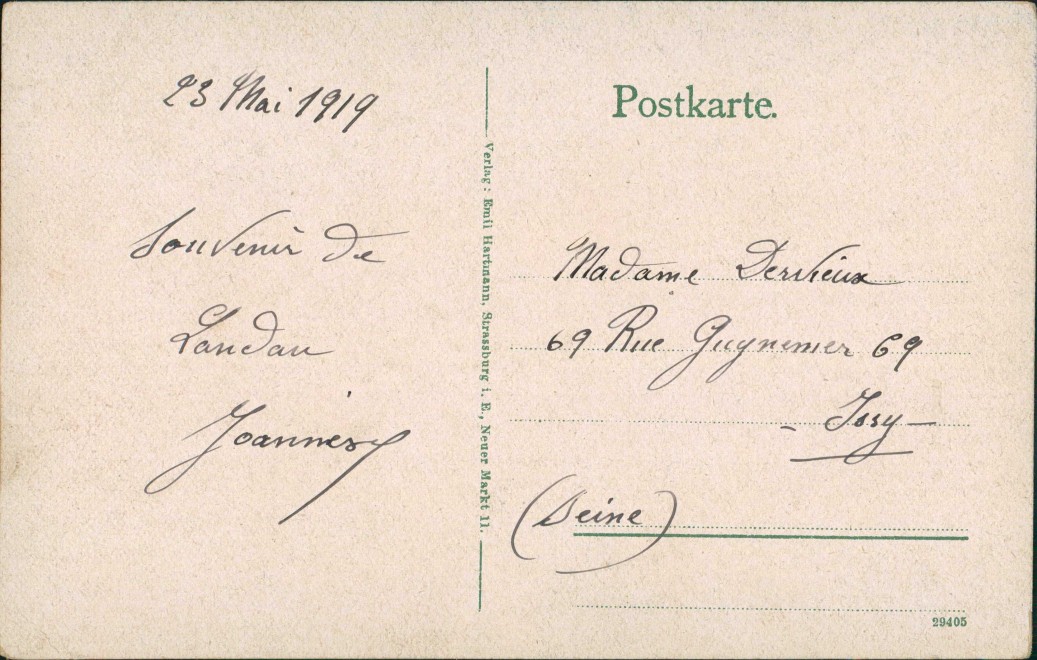 23 Mai 1919
Souvenir de
Landau
Joannès
Verlag: Emil Hartmann, Strassburg i. E., Neuer Markt 11.
Postkarte.
Madame Dervieux
69 Rue Guynemer 69
- Issy -
(Seine)
29405